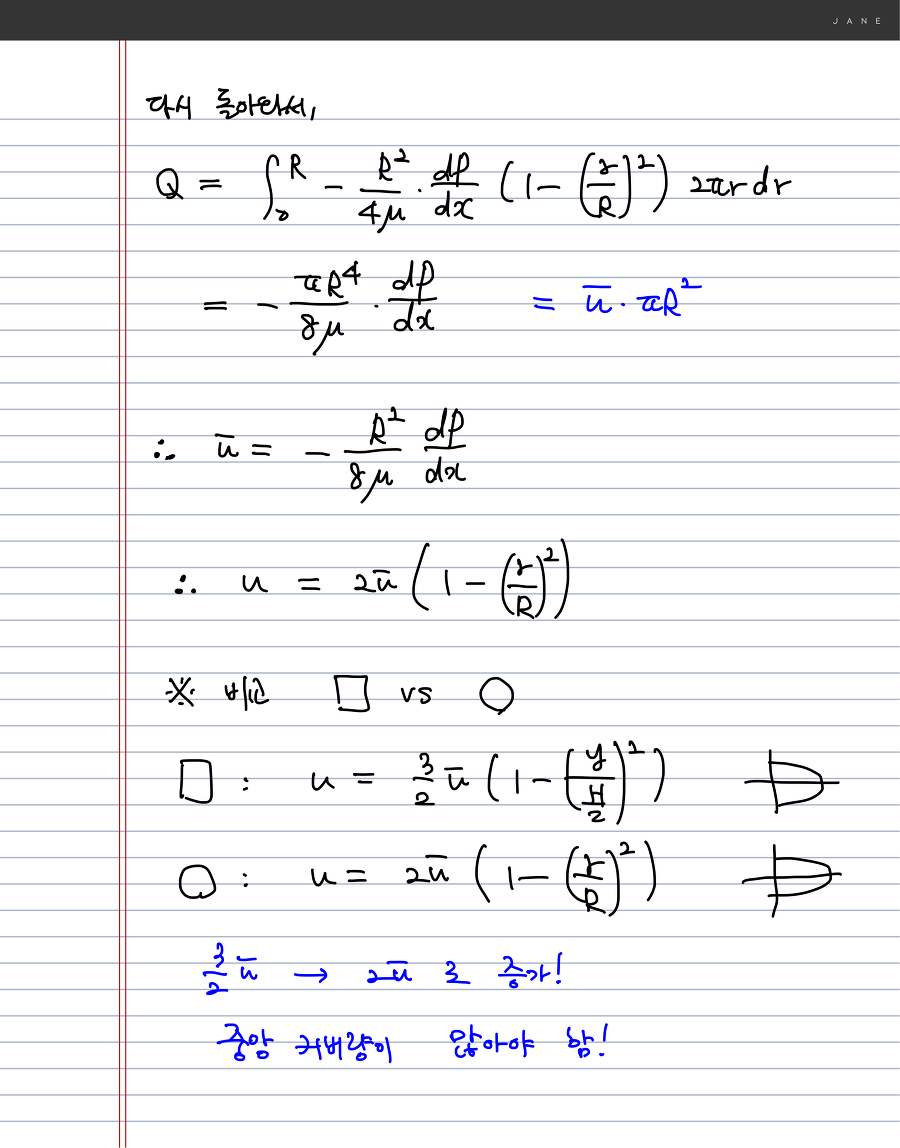 JANE
다시 돌아와서,
Q = ∫₀ᴿ - R²/4μ · dp/dx (1 - (r/R)²) 2πr dr
= - πR⁴/8μ · dp/dx = ū · πR²
∴ ū = - R²/8μ dp/dx
∴ u = 2ū (1 - (r/R)²)
※ 비교 □ vs ○
□ : u = 3/2 ū (1 - (y/(H/2))²)
○ : u = 2ū (1 - (r/R)²)
3/2 ū → 2ū 로 증가!
중앙 커버량이 많아야 함!